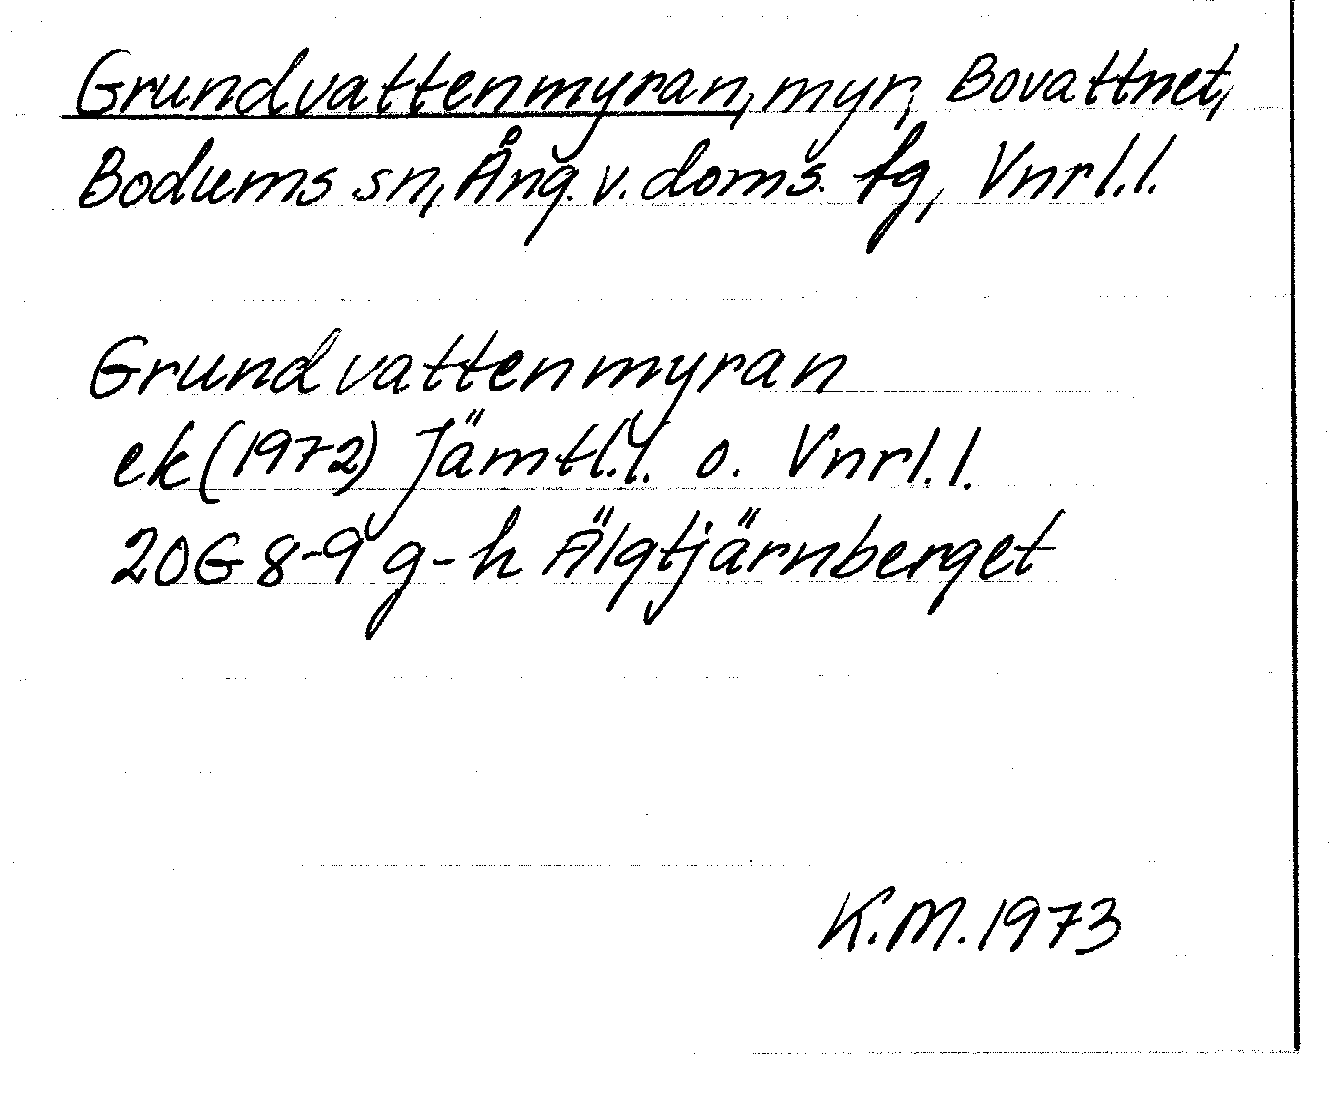 Grundvattenmyran, myr, Bovattnet,
Bodums sn, Ång. v. doms. fg, Vnrl.l.
Grundvattenmyran
ek (1972) Jämtl.l. o. Vnrl.l.
20G 8-9 g-h Älgtjärnberget
K.M. 1973